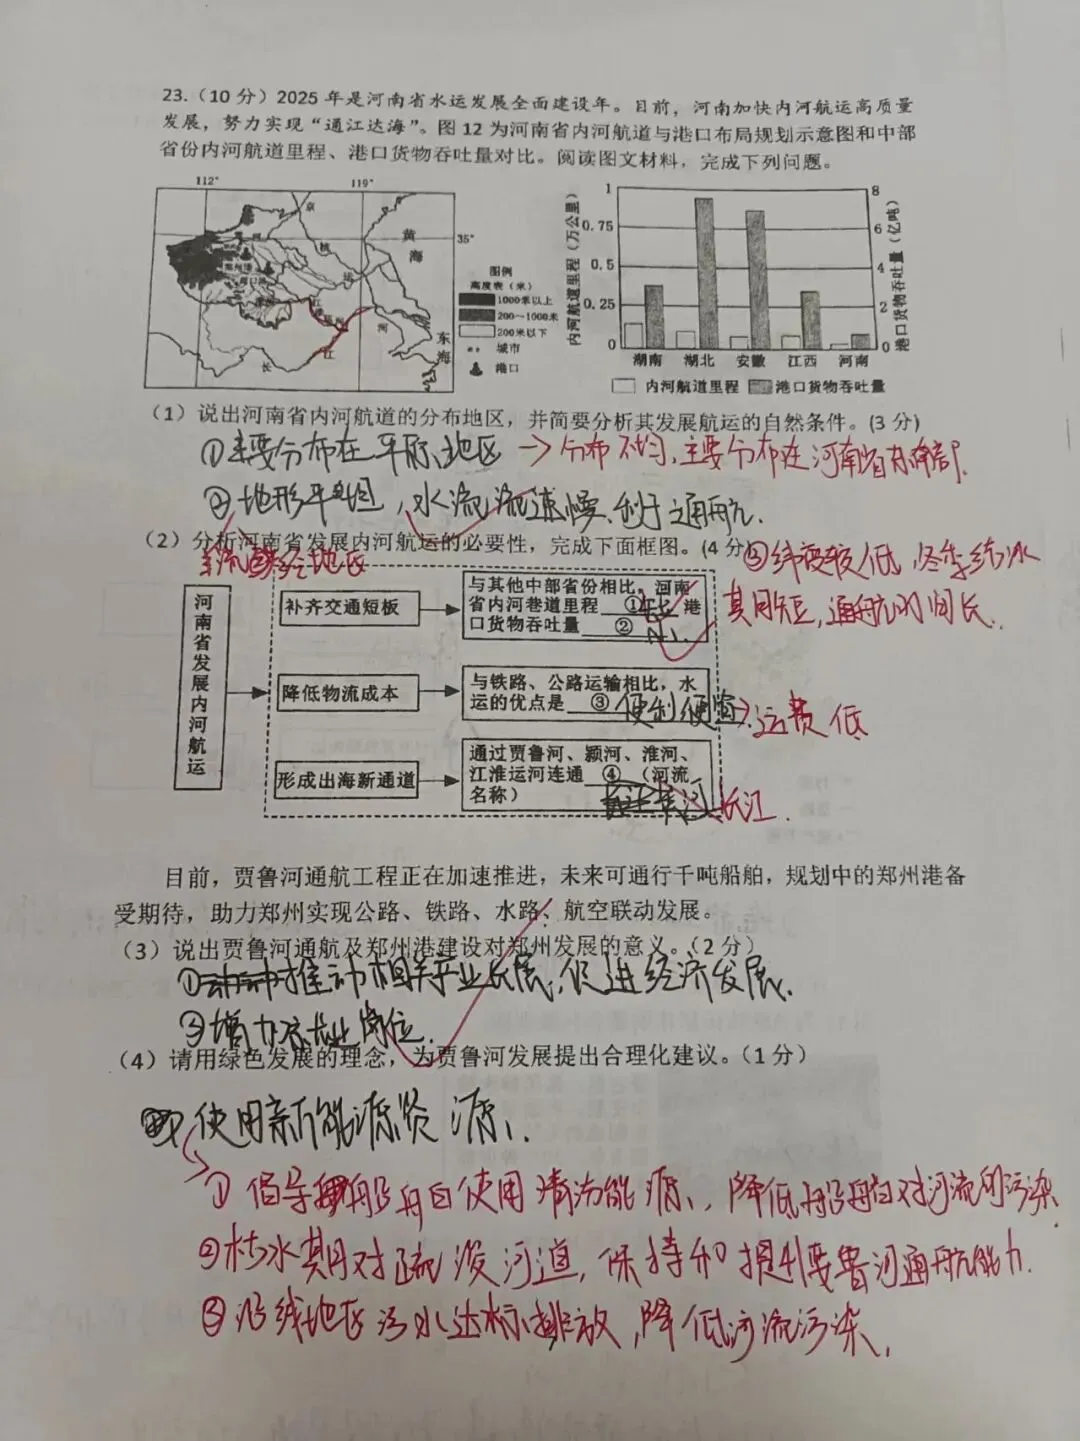 23.（10 分）2025 年是河南省水运发展全面建设年。目前，河南加快内河航运高质量
发展，努力实现“通江达海”。图 12 为河南省内河航道与港口布局规划示意图和中部
省份内河航道里程、港口货物吞吐量对比。阅读图文材料，完成下列问题。
112° 119°
35°
京
杭
运
河
黄
海
东
海
长
江
图例
高度表（米）
1000米以上
200～1000米
200米以下
城市
港口
内河航道里程（万公里）
1
0.75
0.5
0.25
0
8
6
4
2
0
港口货物吞吐量（亿吨）
湖南 湖北 安徽 江西 河南
内河航道里程 港口货物吞吐量
（1）说出河南省内河航道的分布地区，并简要分析其发展航运的自然条件。(3 分)
①主要分布在平原地区 → 分布不均，主要分布在河南省东南部.
②地形平坦，水流流速慢、利于通航.
（2）分析河南省发展内河航运的必要性，完成下面框图。(4 分)
③纬度较低，冬季结冰
其月短，通航时间长.
河南省发展内河航运
补齐交通短板
与其他中部省份相比，河南
省内河巷道里程 ① 短 港
口货物吞吐量 ②
小.
降低物流成本
与铁路、公路运输相比，水
运的优点是 ③ 便利便宜 运费低
形成出海新通道
通过贾鲁河、颍河、淮河、
江淮运河连通 ④ （河流
名称）
长江.
目前，贾鲁河通航工程正在加速推进，未来可通行千吨船舶，规划中的郑州港备
受期待，助力郑州实现公路、铁路、水路、航空联动发展。
（3）说出贾鲁河通航及郑州港建设对郑州发展的意义。（2 分）
①推动相关产业发展，促进经济发展.
②增加就业岗位.
（4）请用绿色发展的理念，为贾鲁河发展提出合理化建议。（1 分）
使用新能源资源.
①倡导船舶使用清洁能源、降低船舶对河流的污染.
②枯水期对疏浚河道，保持和提升贾鲁河通航能力.
③沿线地区污水达标排放，降低河流污染.